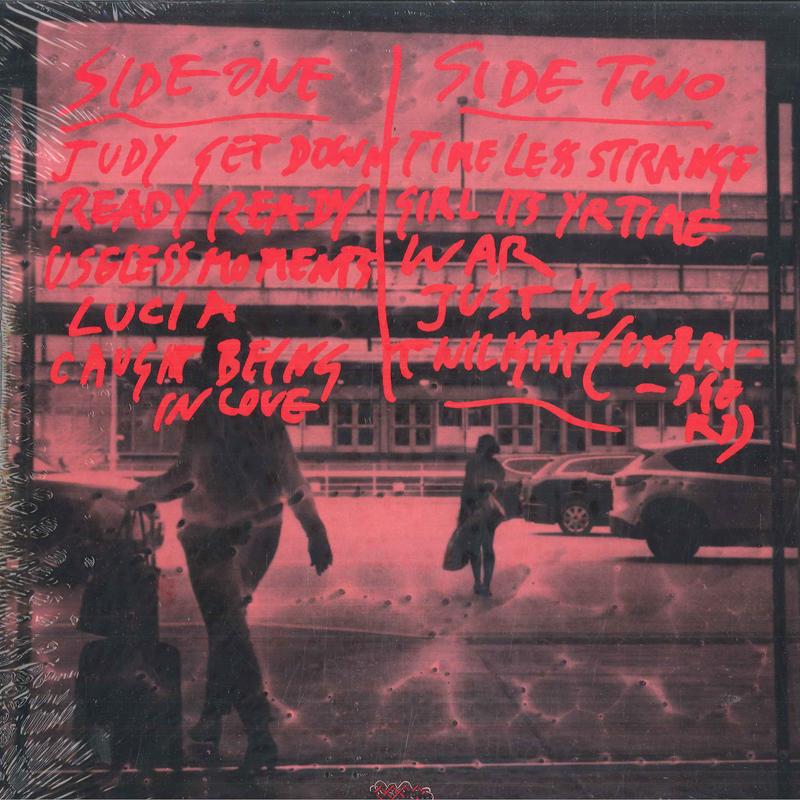 SIDE ONE
JUDY GET DOWN
READY READY
USELESS MOMENTS
LUCIA
CAUGHT BEING
IN LOVE
SIDE TWO
TIMELESS STRANGE
GIRL ITS YR TIME
WAR
JUST US
TWILIGHT (UXBRI-
-DGE
RD)